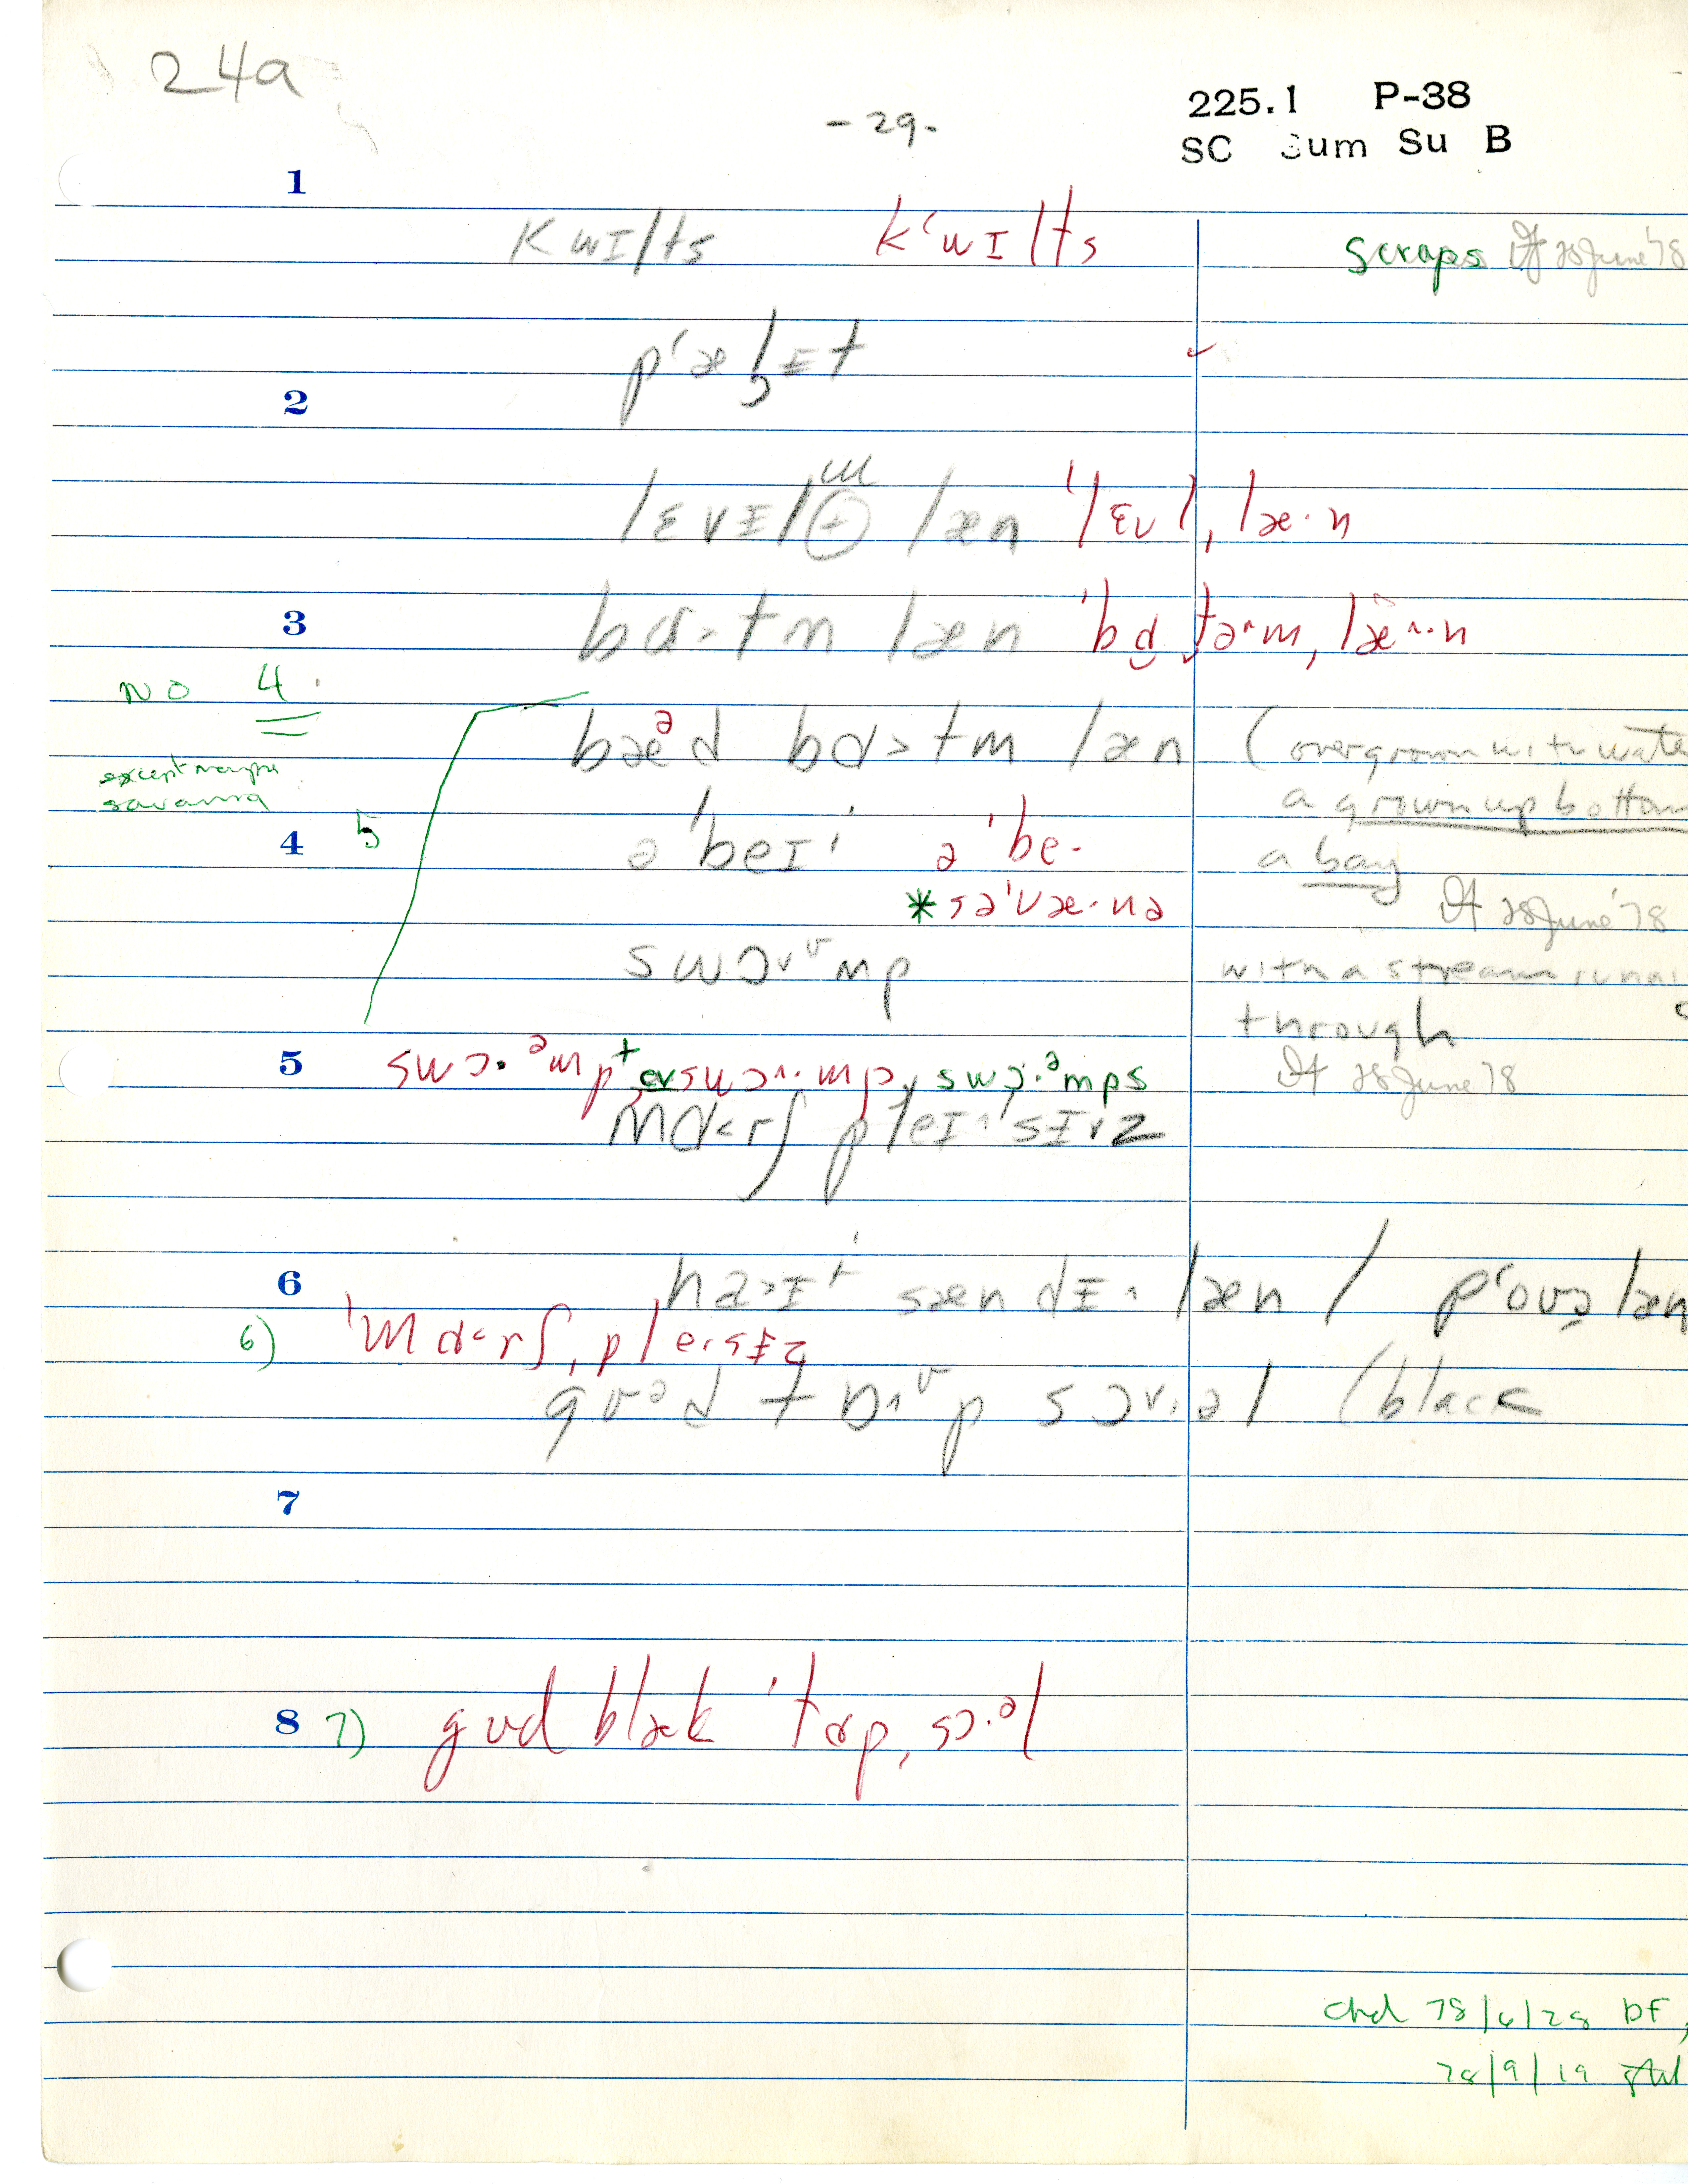 24a
- 29 -
225.1 P-38
SC Sum Su B
1
kwɪlts k‘wɪlts scraps 28 June '78
p‘æɫɪt ✓
2
lɛvɪl læn 'lɛvl̩, læ·n
3 bɑ˃tm læn
NO 4
bæᵊd bɑ˃tm læn (overgrown with wate
except maybe
savanna
a grown up bottom
4 5 ə 'beɪ' ə 'be· a bay
28 June '78
* sə'væ·nə
swɔᵛᵛmp with a stream runni
through
5 swɔ·ᵊmp swɔ˄·mp, swɔ·ᵊmps 28 June '78
mɑ˂rʃ pleɪsɪz
6 sændɪ˄ læn / p‘ouə læn
6) 'mɑ˂rʃ, pleɪsɪz
sɔᵛ·əl (black
7
8 7) gud blæk 'tɑp, sɔ·ᵊl
chd 78/6/28 DF,
78/9/19